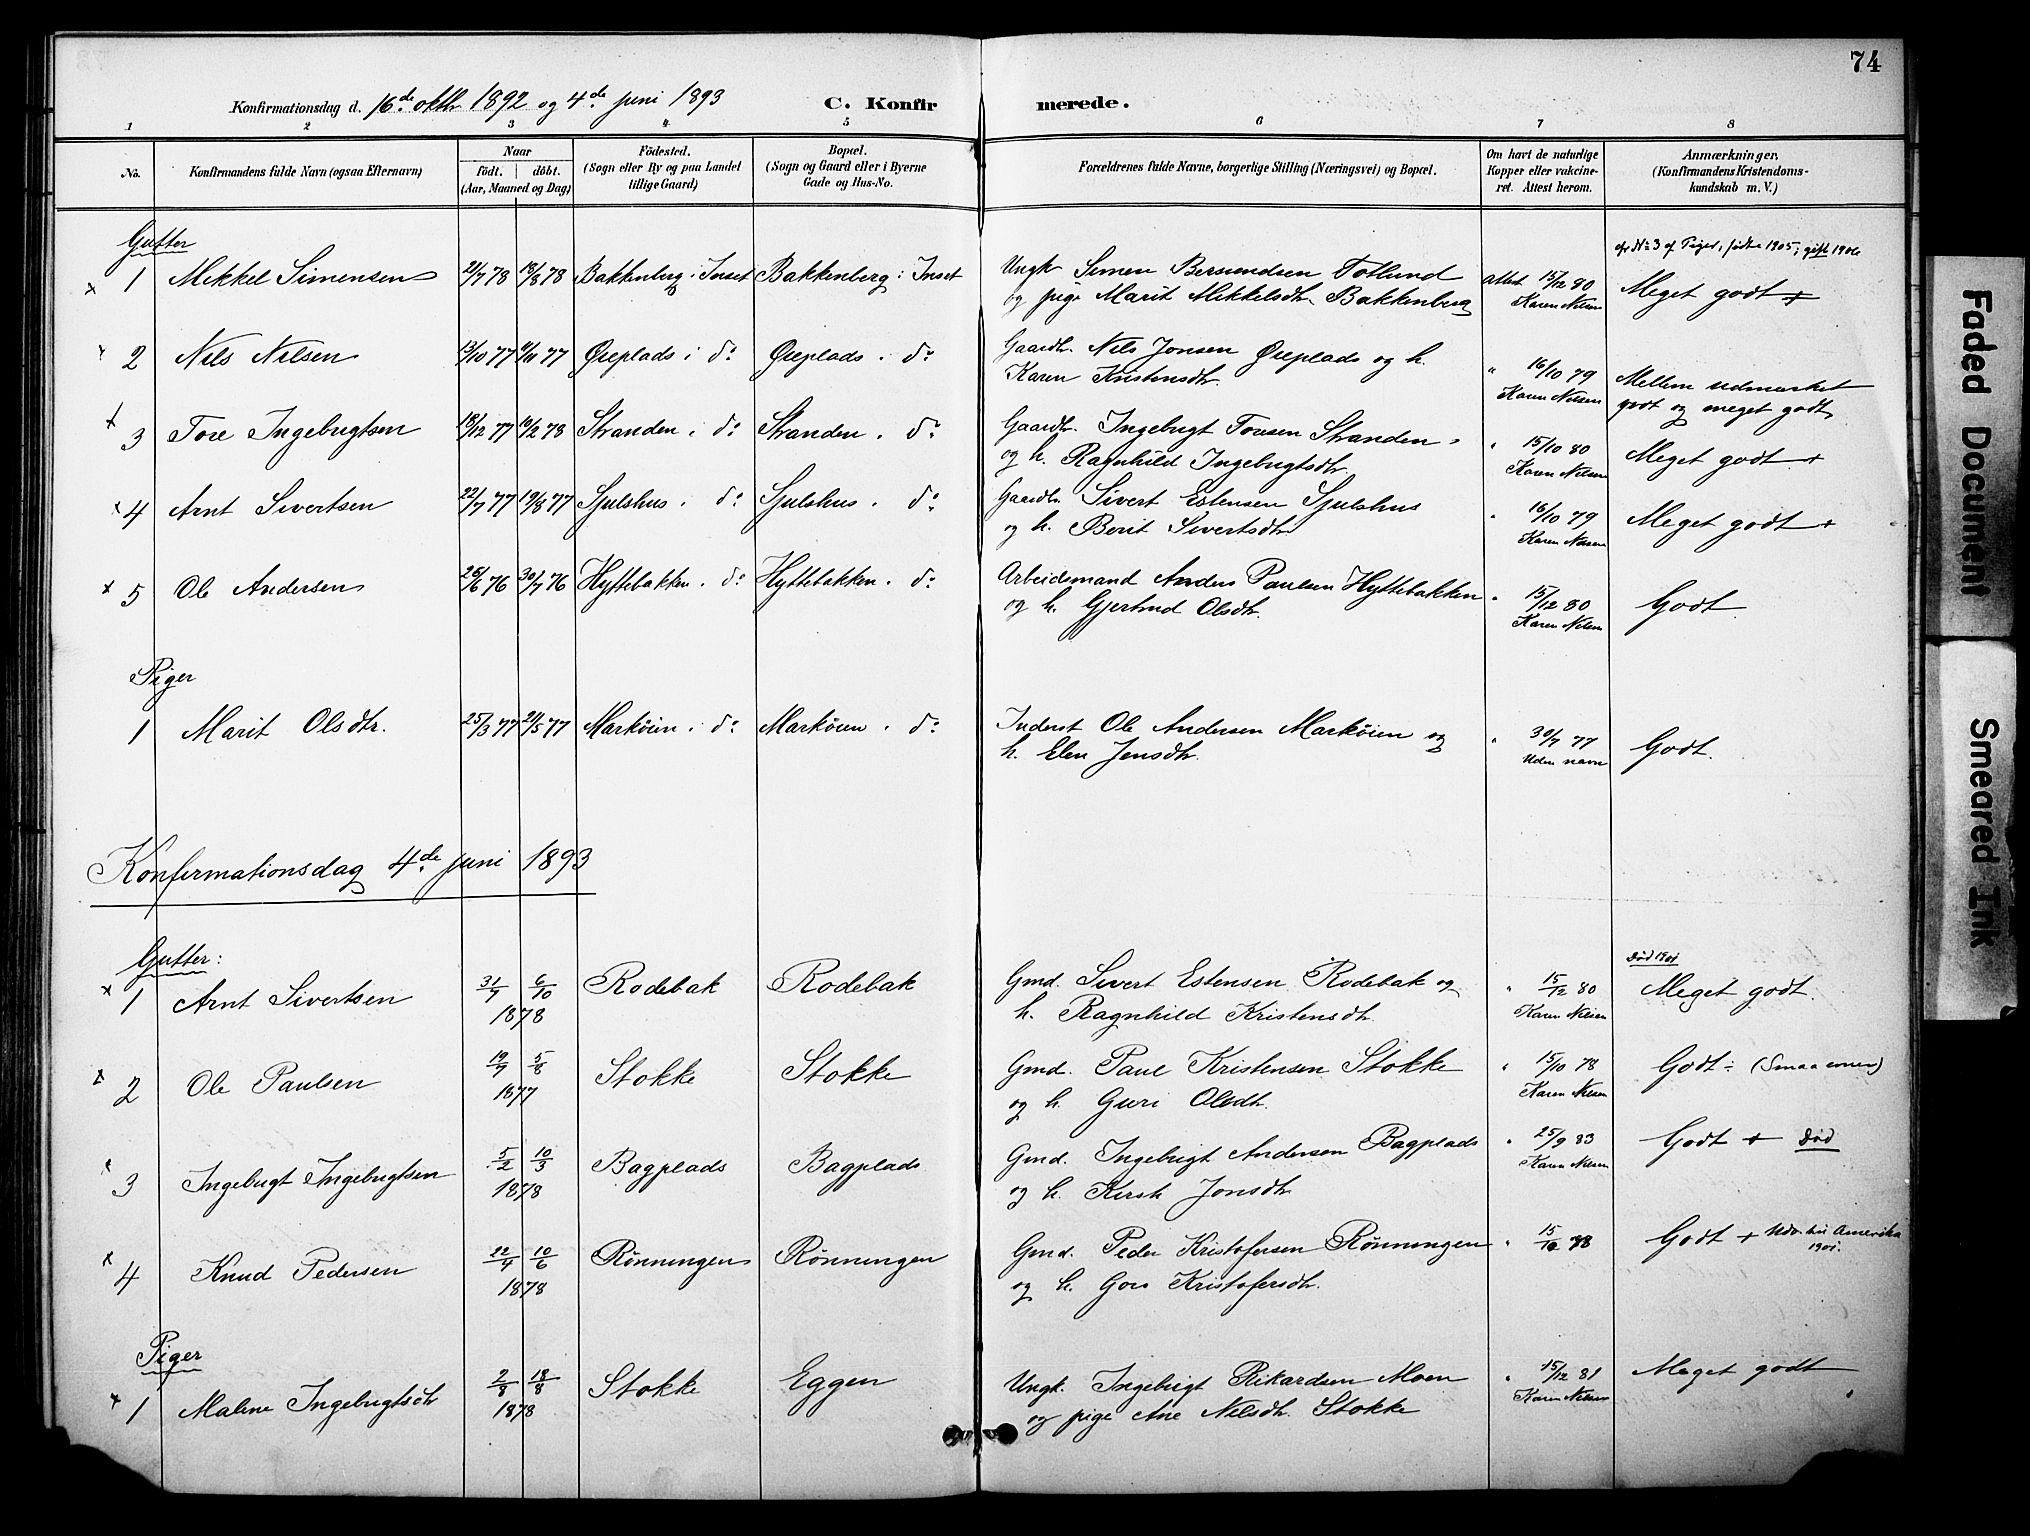 74
Konfirmationsdag d. 16de oktbr 1892 og 4de juni 1893 C. Konfirmerede.
1 2 3 4 5 6 7 8
No. Konfirmandens fulde Navn (ogsaa Efternavn) Naar födt. döbt. (Aar, Maaned og Dag) Födested. (Sogn eller By og paa Landet tillige Gaard) Bopæl. (Sogn og Gaard eller i Byerne Gade og Hus-No. Forældrenes fulde Navne, borgerlige Stilling (Næringsvei) og Bopæl. Om havt de naturlige Kopper eller vaccineret. Attest herom. Anmærkninger. (Konfirmandens Kristendomskundskab m. V.)
Gutter
cfr No 3 af Piger, født 1905, gift 1906
1 Mikkel Simensen 21/7 78 18/8 78 Bakkenberg i Inset Bakkenberg i Inset Ungk. Simen Bersvendsen Totlund attest 15/12 80 Meget godt +
og pige Marit Mikkelsdtr. Bakkenberg Karen Nilsen
2 Nils Nilsen 13/10 77 4/11 77 Øieplads i do Øieplads i do Gaardbr. Nils Jonsen Øieplads og h. " 16/10 79 Mellem udmærket
Karen Kristensdtr. Karen Nilsen godt og meget godt
3 Tore Ingebrigtsen 18/12 77 10/2 78 Stranden i do Stranden i do Gaardbr. Ingebrigt Toresen Stranden " 15/10 80 Meget godt +
og h. Ragnhild Ingebrigtsdtr. Karen Nilsen
4 Arnt Sivertsen 22/7 77 19/8 77 Sjulshus i do Sjulshus i do Gaardbr. Sivert Estensen Sjulshus " 16/10 79 Meget godt +
og h. Berit Sivertsdtr Karen Nilsen
5 Ole Andersen 26/6 76 30/7 76 Hyttebakken i do Hyttebakken i do Arbeidsmand Anders Paulsen Hyttebakken " 15/12 80 Godt
og h. Gjertrud Olsdtr. Karen Nilsen
Piger
1 Marit Olsdtr. 25/3 77 21/5 77 Markøien i do Markøien i do Inderst Ole Andersen Markøien og " 30/7 77 Godt.
h. Elen Jensdtr. Uden navn
Konfirmationsdag 4de juni 1893
Gutter:
Død 1901
1 Arnt Sivertsen 31/7 6/10 1878 Rodebak Rodebak Gmd. Sivert Estensen Rodebak og " 15/12 80 Meget godt.
h. Ragnhild Kristensdtr. Karen Nilsen
2 Ole Paulsen 19/7 5/8 1877 Stokke Stokke Gmd. Paul Kristensen Stokke " 15/10 78 Godt ÷
og h. Guri Olsdtr. Karen Nilsen
3 Ingebrigt Ingebrigtsen 5/2 10/3 1878 Bagplads Bagplads Gmd. Ingebrigt Andersen Bagplads " 25/9 83 Godt + Død
og h. Kirsti Jonsdtr Karen Nilsen
4 Knud Pedersen 22/4 10/6 1878 Rönningen Rönningen Gmd. Peder Kristofersen Rönningen " Godt + Udv. til Amerika 1901.
og h. Goro Kristofersdtr.
Piger
1 Malene Ingebrigtsdtr 2/8 18/8 1878 Stokke Eggen Ungk. Ingebrigt Rikardsen Moen " 15/12 81 Meget godt
og pige Ane Nilsdtr. Stokke Karen Nilsen
Faded Document
Smeared Ink